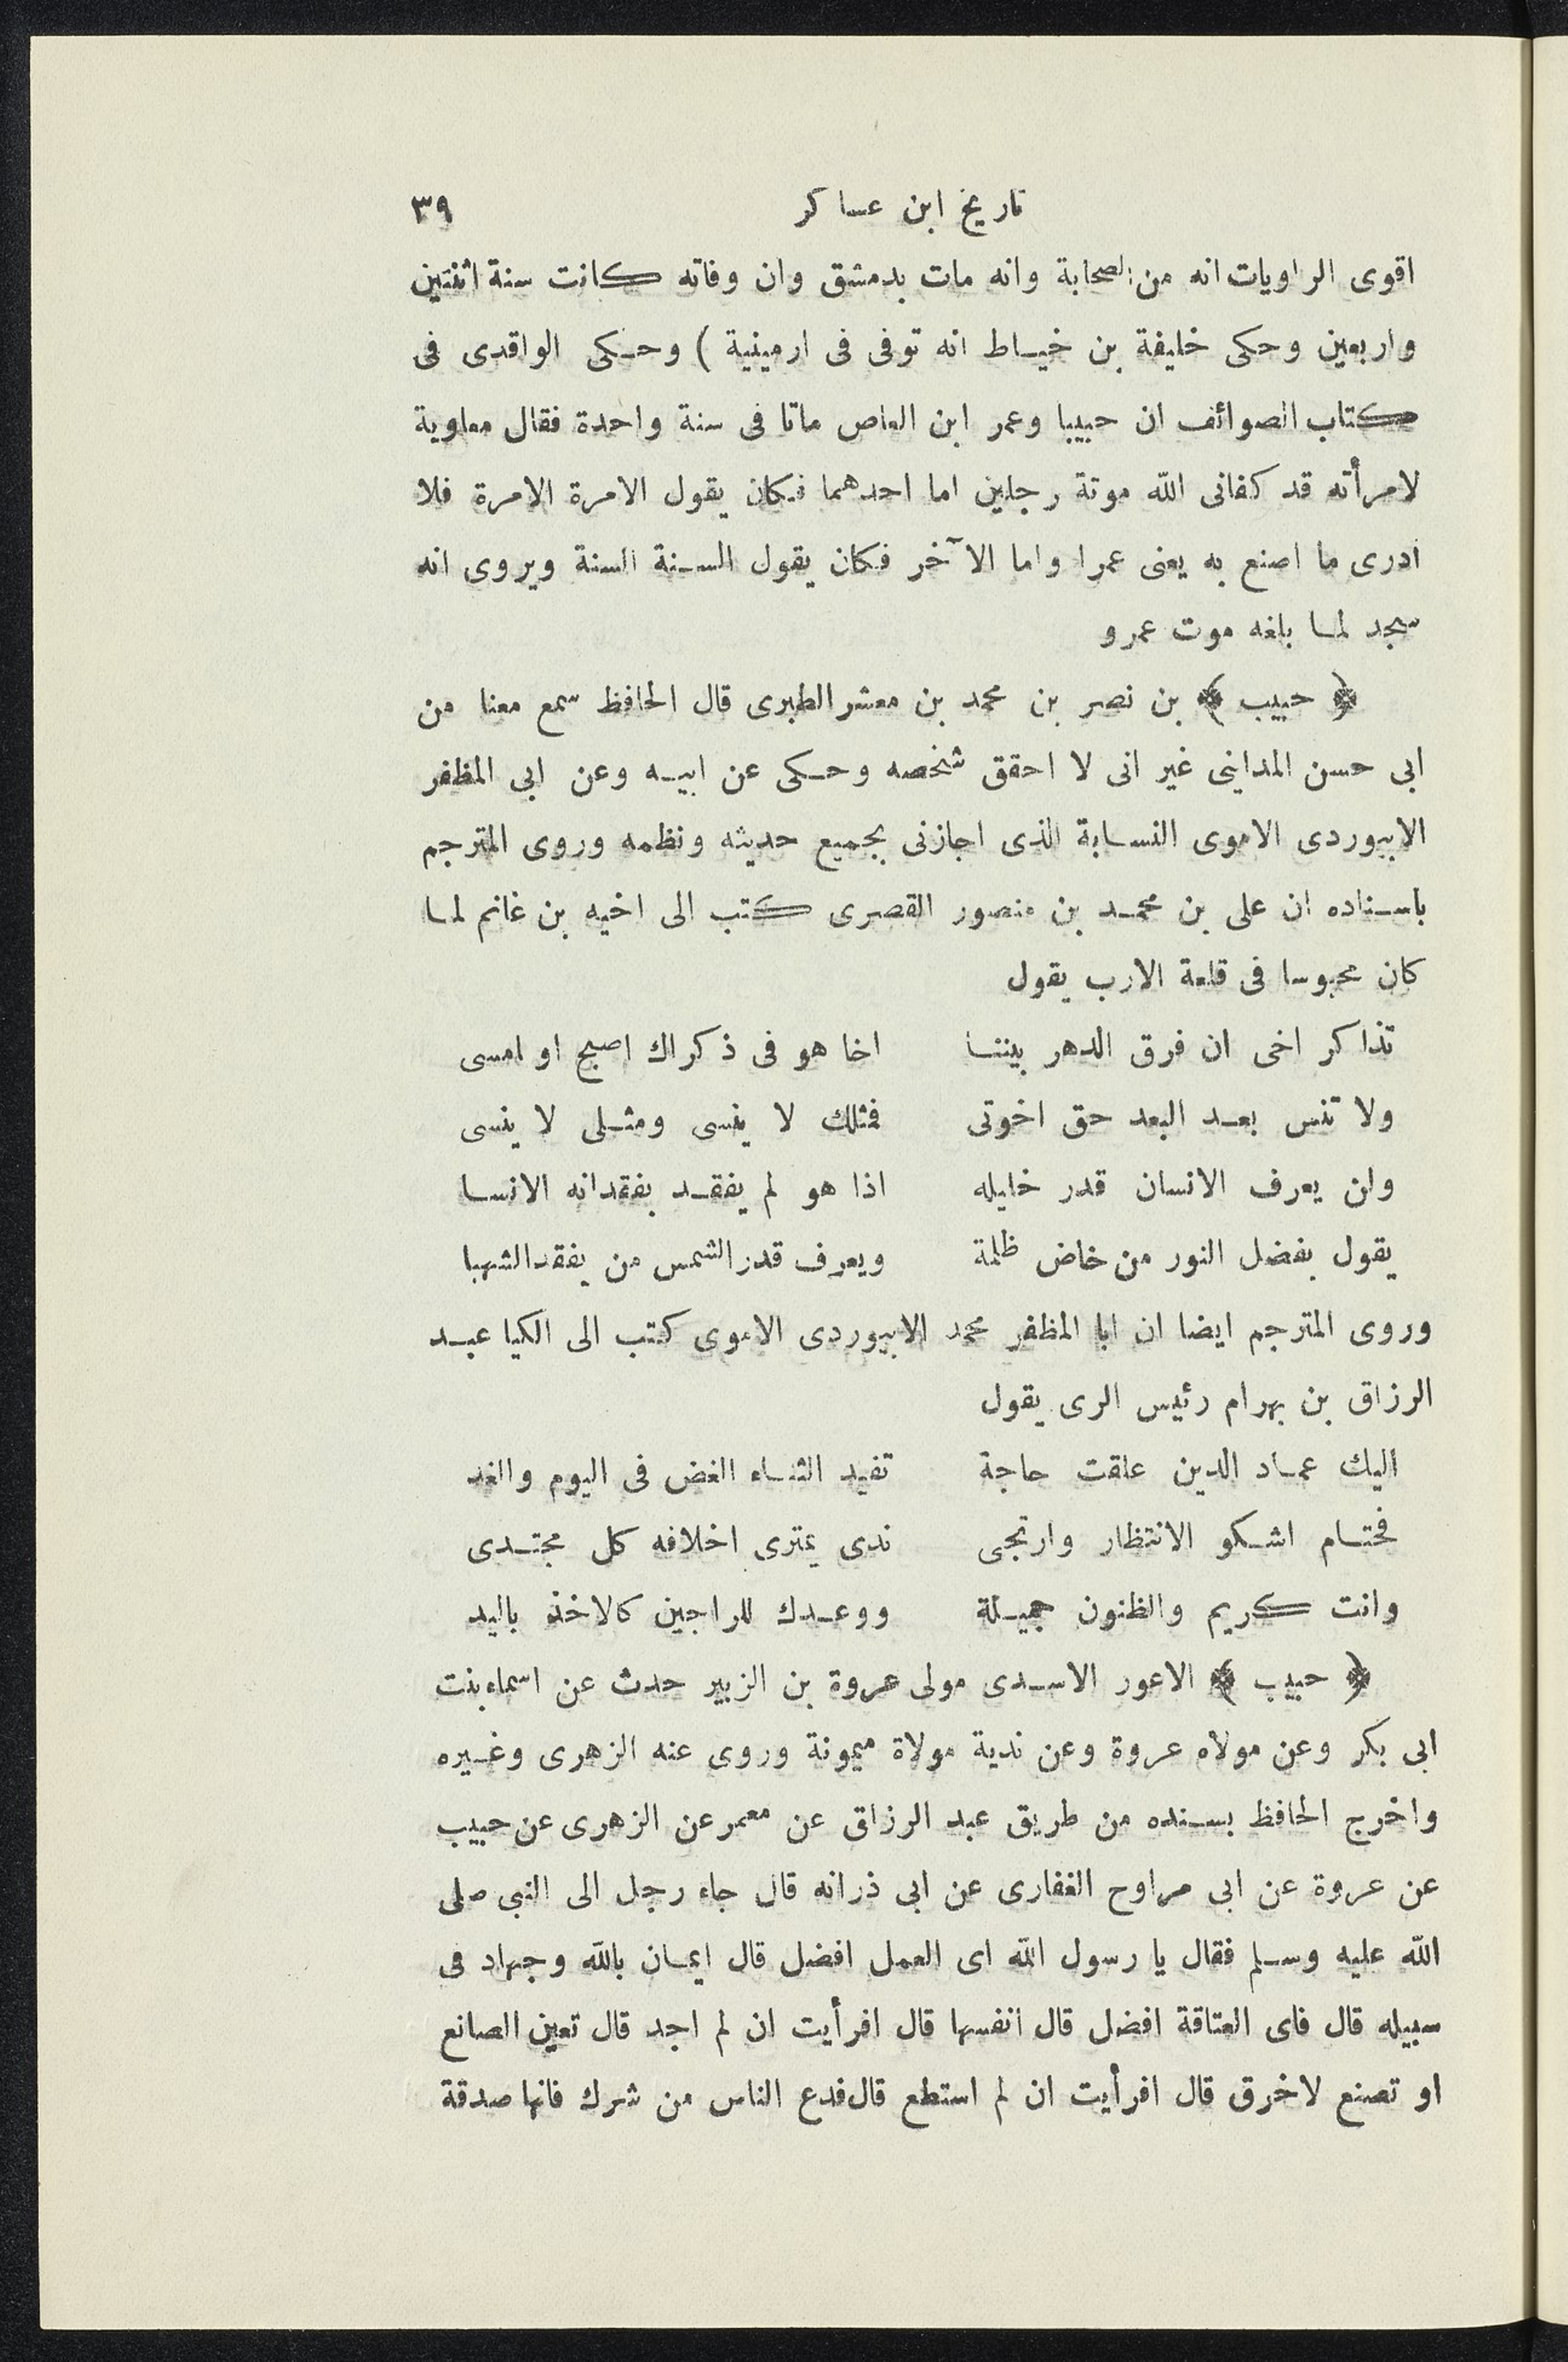 تاريخ ابن عساكر ٣٩
اقوى الراويات انه من الصحابة وانه مات بدمشق وان وفاته كانت سنة اثنتين
واربعين وحكى خليفة بن خياط انه توفى فى ارمينية ) وحكى الواقدى فى
كتاب الصوائف ان حبيبا وعمر ابن العاص ماتا فى سنة واحدة فقال معاوية
لامرأته قد كفانى الله موتة رجلين اما احدهما فكان يقول الامرة الامرة فلا
ادرى ما اصنع به يعنى عمرا واما الآخر فكان يقول السنة السنة ويروى انه
سجد لما بلغه موت عمرو
﴿ حبيب ﴾ بن نصر بن محمد بن معشر الطبرى قال الحافظ سمع معنا من
ابى حسن المداينى غير انى لا احقق شخصه وحكى عن ابيه وعن ابى المظفر
الابيوردى الاموى النسابة الذى اجازنى بجميع حديثه ونظمه وروى المترجم
باسناده ان على بن محمد بن منصور القصرى كتب الى اخيه بن غانم لما
كان محبوسا فى قلعة الارب يقول
تذاكر اخى ان فرق الدهر بيننا اخا هو فى ذكراك اصبح او امسى
ولا تنس بعد البعد حق اخوتى فمثلك لا ينسى ومثلى لا ينسى
ولن يعرف الانسان قدر خليله اذا هو لم يفقد بفقدانه الانسا
يقول بفضل النور من خاض ظلمة ويعرف قدر الشمس من يفقد الشهبا
وروى المترجم ايضا ان ابا المظفر محمد الابيوردى الاموى كتب الى الكيا عبد
الرزاق بن بهرام رئيس الرى يقول
اليك عماد الدين علقت حاجة تفيد الثناء الغض فى اليوم والغد
فحتام اشكو الانتظار وارتجى ندى يمترى اخلافه كل مجتدى
وانت كريم والظنون جميلة ووعدك للراجين كالاخذ باليد
﴿ حبيب ﴾ الاعور الاسدى مولى عروة بن الزبير حدث عن اسماء بنت
ابى بكر وعن مولاه عروة وعن ندية مولاة ميمونة وروى عنه الزهرى وغيره
واخرج الحافظ بسنده من طريق عبد الرزاق عن معمر عن الزهرى عن حبيب
عن عروة عن ابى مراوح الغفارى عن ابى ذرانه قال جاء رجل الى النبى صلى
الله عليه وسلم فقال يا رسول الله اى العمل افضل قال ايمان بالله وجهاد فى
سبيله قال فاى العتاقة افضل قال انفسها قال افرأيت ان لم اجد قال تعين الصانع
او تصنع لاخرق قال افرأيت ان لم استطع قال فدع الناس من شرك فانها صدقة